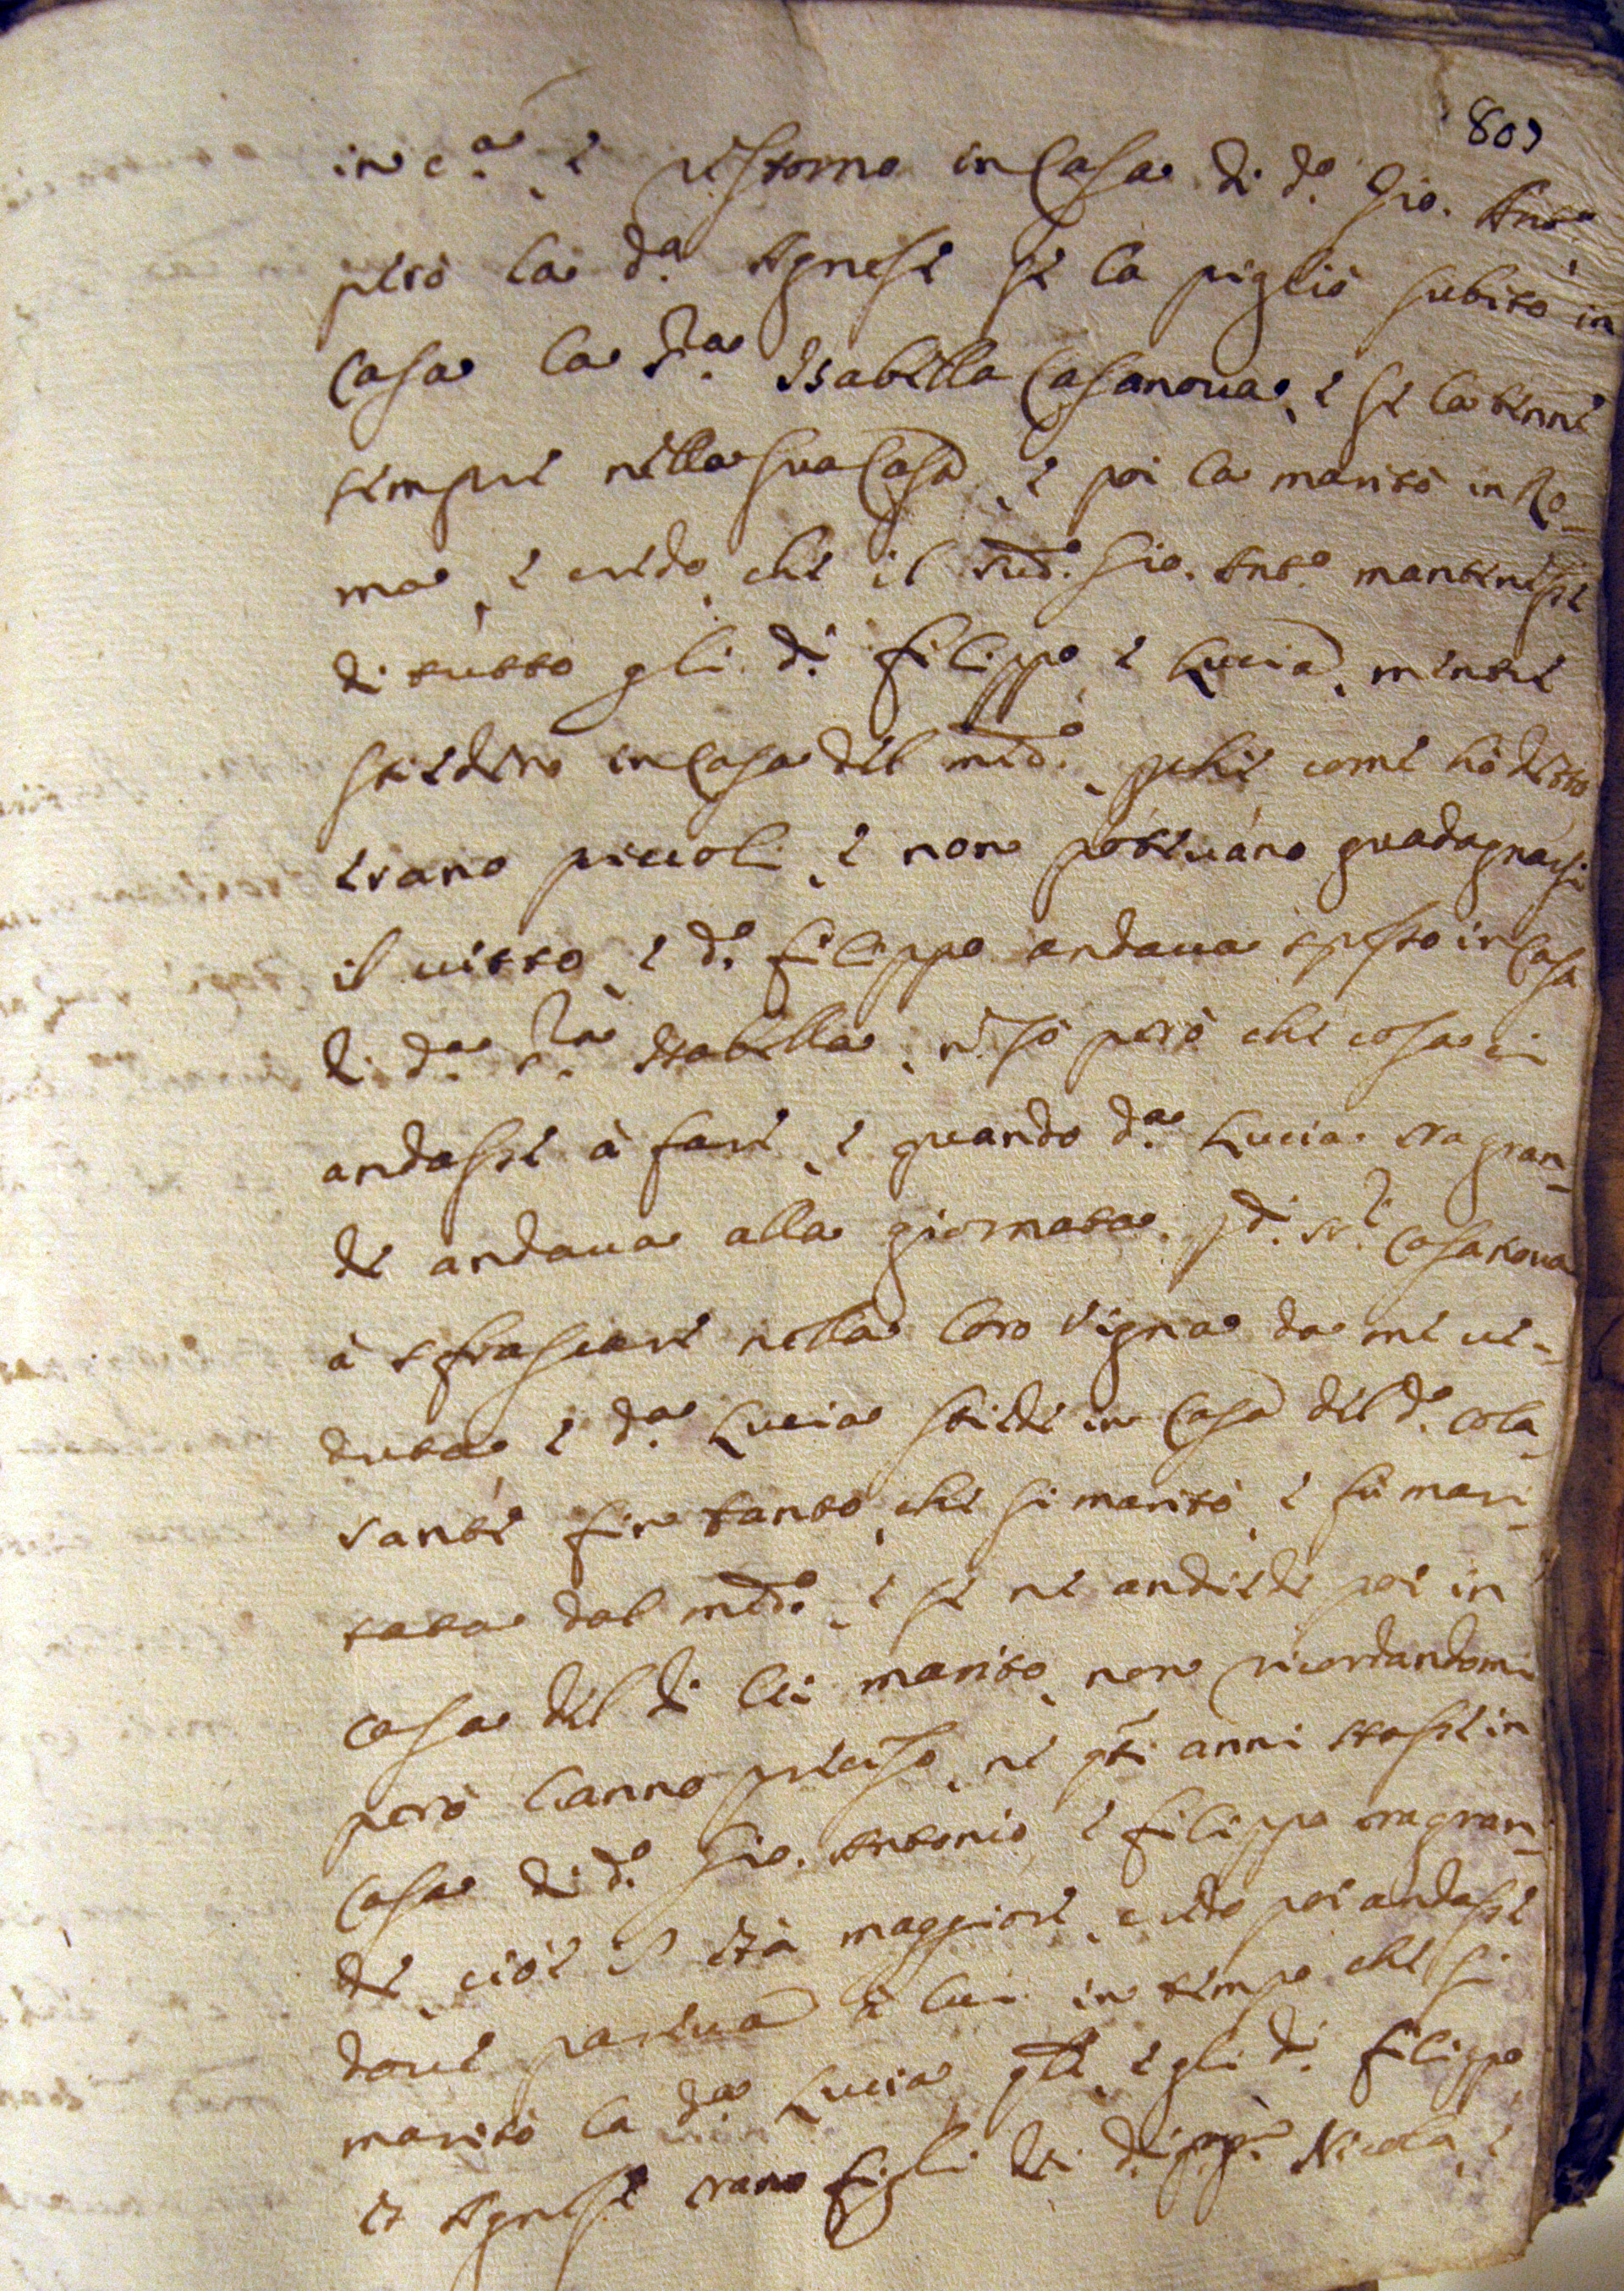 809
in c.a e ristorno in Casa di d.o Gio. Ant.o
però la d.a Agnese se la pigliò subito in
Casa la Sig.ra Isabella Casanova, e se la tenne
sempre nella sua Casa, e poi la maritò in Ro-
ma, e credo, che il sud.o Gio. Ant.o mantenesse
di tutto gli d.i Filippo, e Lucia, mentre
stiedero in Casa del med.o, perche come hò detto
erano piccoli, e non potevano guadagnarsi
il vitto, e d.o Filippo andava spesso in Casa
di d.a Sig.ra Isabella, n. sò però che cosa ci
andasse à fare, e quando d.a Lucia era gran-
de andava alla giornata d.i SS.ri Casanova
à sfrascare nella loro Vigna da me ve-
duta e d.a Lucia stiede in Casa del d.o Cola-
santi fin tanto, che si maritò, e fù mari-
tata dal med.o, e se ne andiede poi in
casa del di lei marito, non ricordandomi
però l'anno preciso, ne q.ti anni stasse in
Casa di d.o Gio. Antonio, e Filippo era gran-
de, cioè d'età maggiore, credo poi andasse
dove pareva à lui in tempo che si
maritò la d.a Lucia, e gli d.i Filippo,
et Agnese erano figli dei d.i Nicola, e